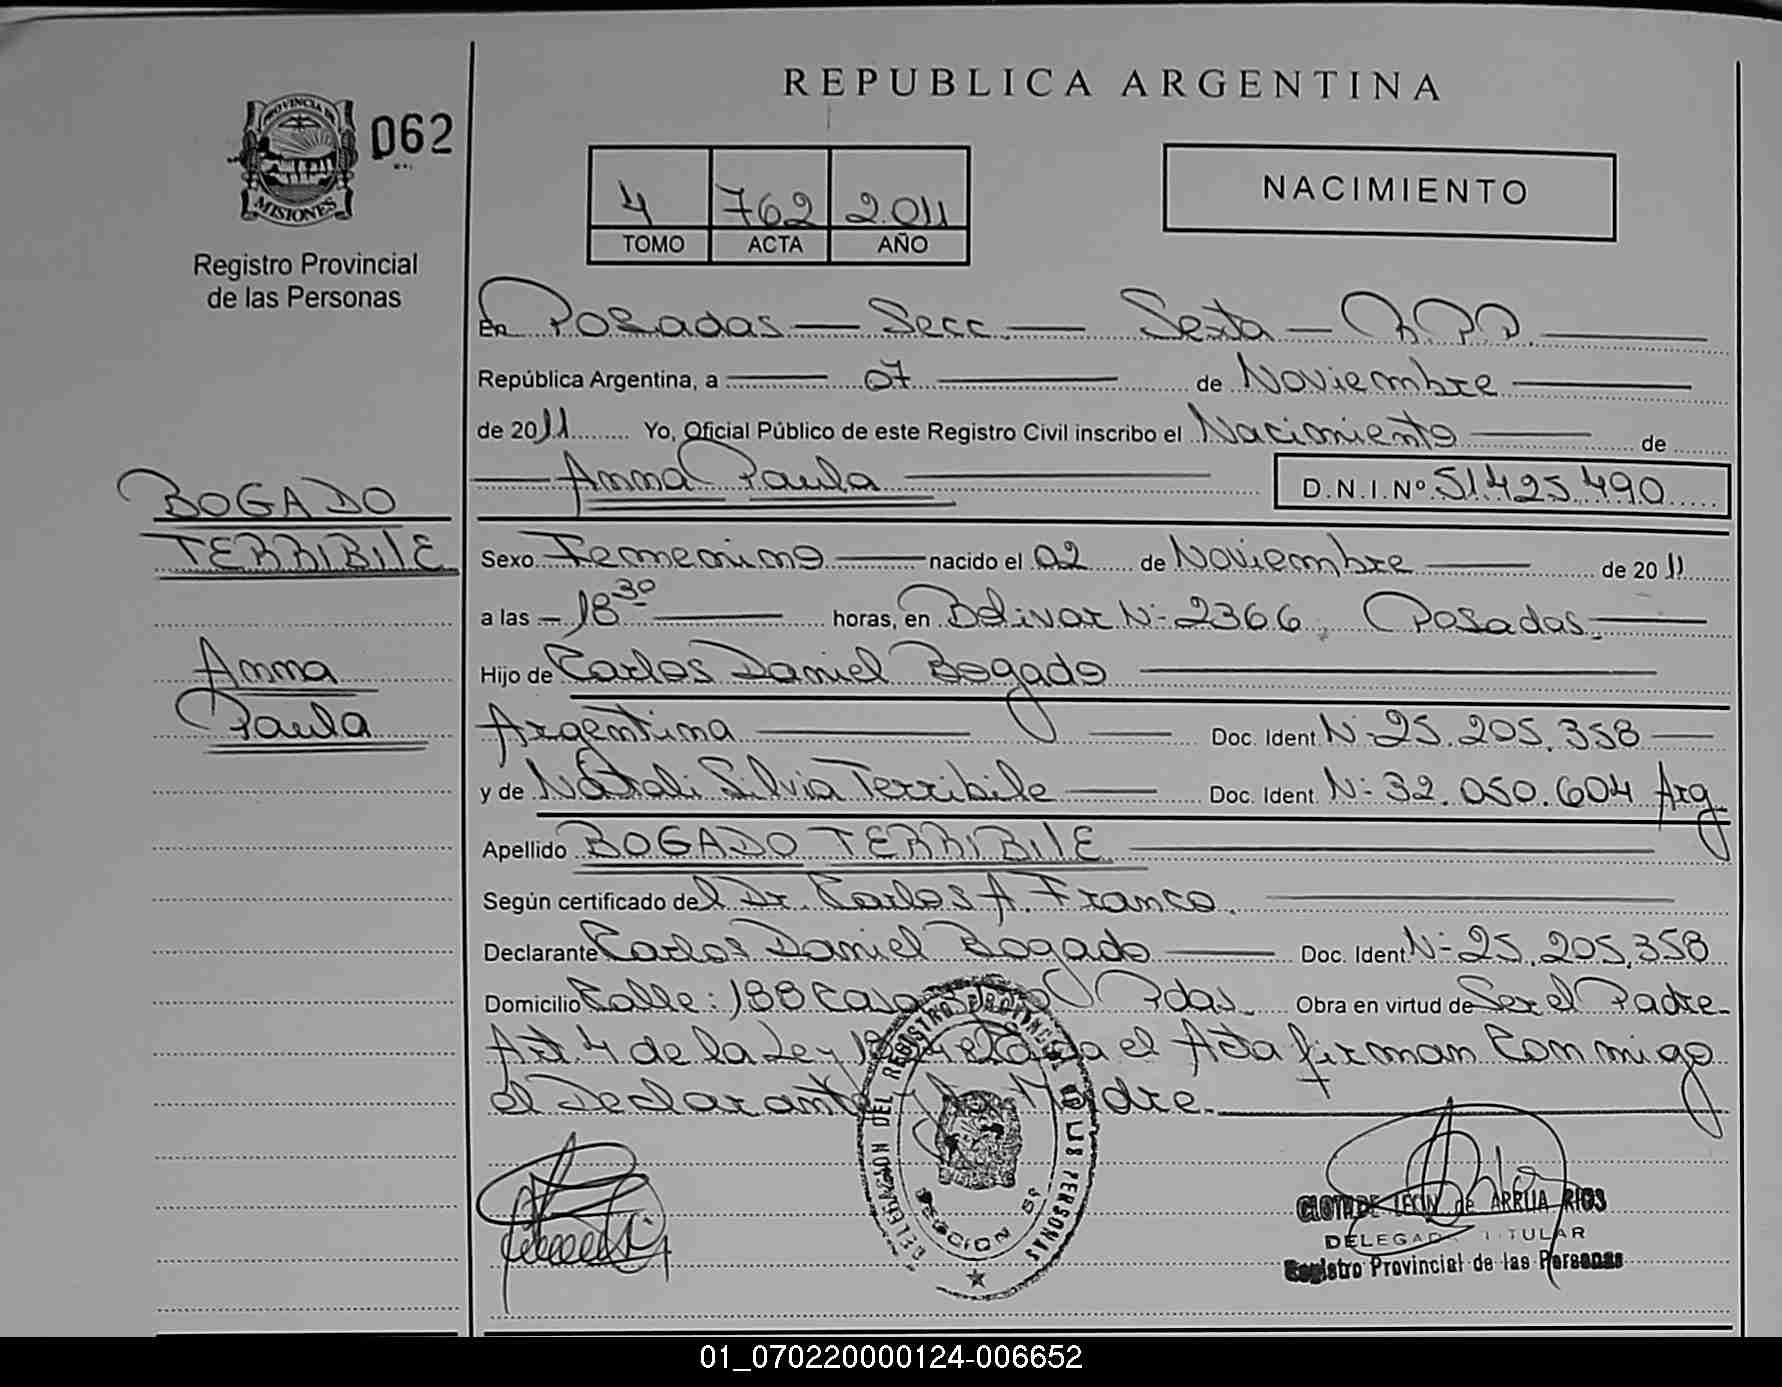 PROVINCIA DE
MISIONES
062
Registro Provincial
de las Personas
REPUBLICA ARGENTINA
4 762 2.011
TOMO ACTA AÑO
NACIMIENTO
En Posadas — Secc. — Sexta — R.P.P.
República Argentina, a — 07 — de Noviembre —
de 2011 Yo, Oficial Público de este Registro Civil inscribo el Nacimiento — de
— Anna Paula — D.N.I.Nº 51.425.490
BOGADO
TERRIBILE
Anna
Paula
Sexo Femenino — nacido el 02 de Noviembre — de 2011
a las — 18 30 — horas, en Bolivar N- 2366 Posadas. —
Hijo de Carlos Daniel Bogado —
Argentina — Doc. Ident. N- 25.205.358 —
y de Natali Silvia Terribile — Doc. Ident. N- 32.050.604 Arg.
Apellido BOGADO TERRIBILE —
Según certificado del Dr. Carlos A. Franco. —
Declarante Carlos Daniel Bogado — Doc. Ident N- 25.205.358
Domicilio Calle: 188 Casa Pdas. Obra en virtud de Ser el Padre-
Art. 4 de la Ley el Acta firman Conmigo
el Declarante Madre.
DELEGACION DEL REGISTRO PROVINCIAL DE LAS PERSONAS
SECCION 6ª
CLOTILDE LEON de ARRUA RIOS
DELEGADA TITULAR
Registro Provincial de las Personas
01_070220000124-006652